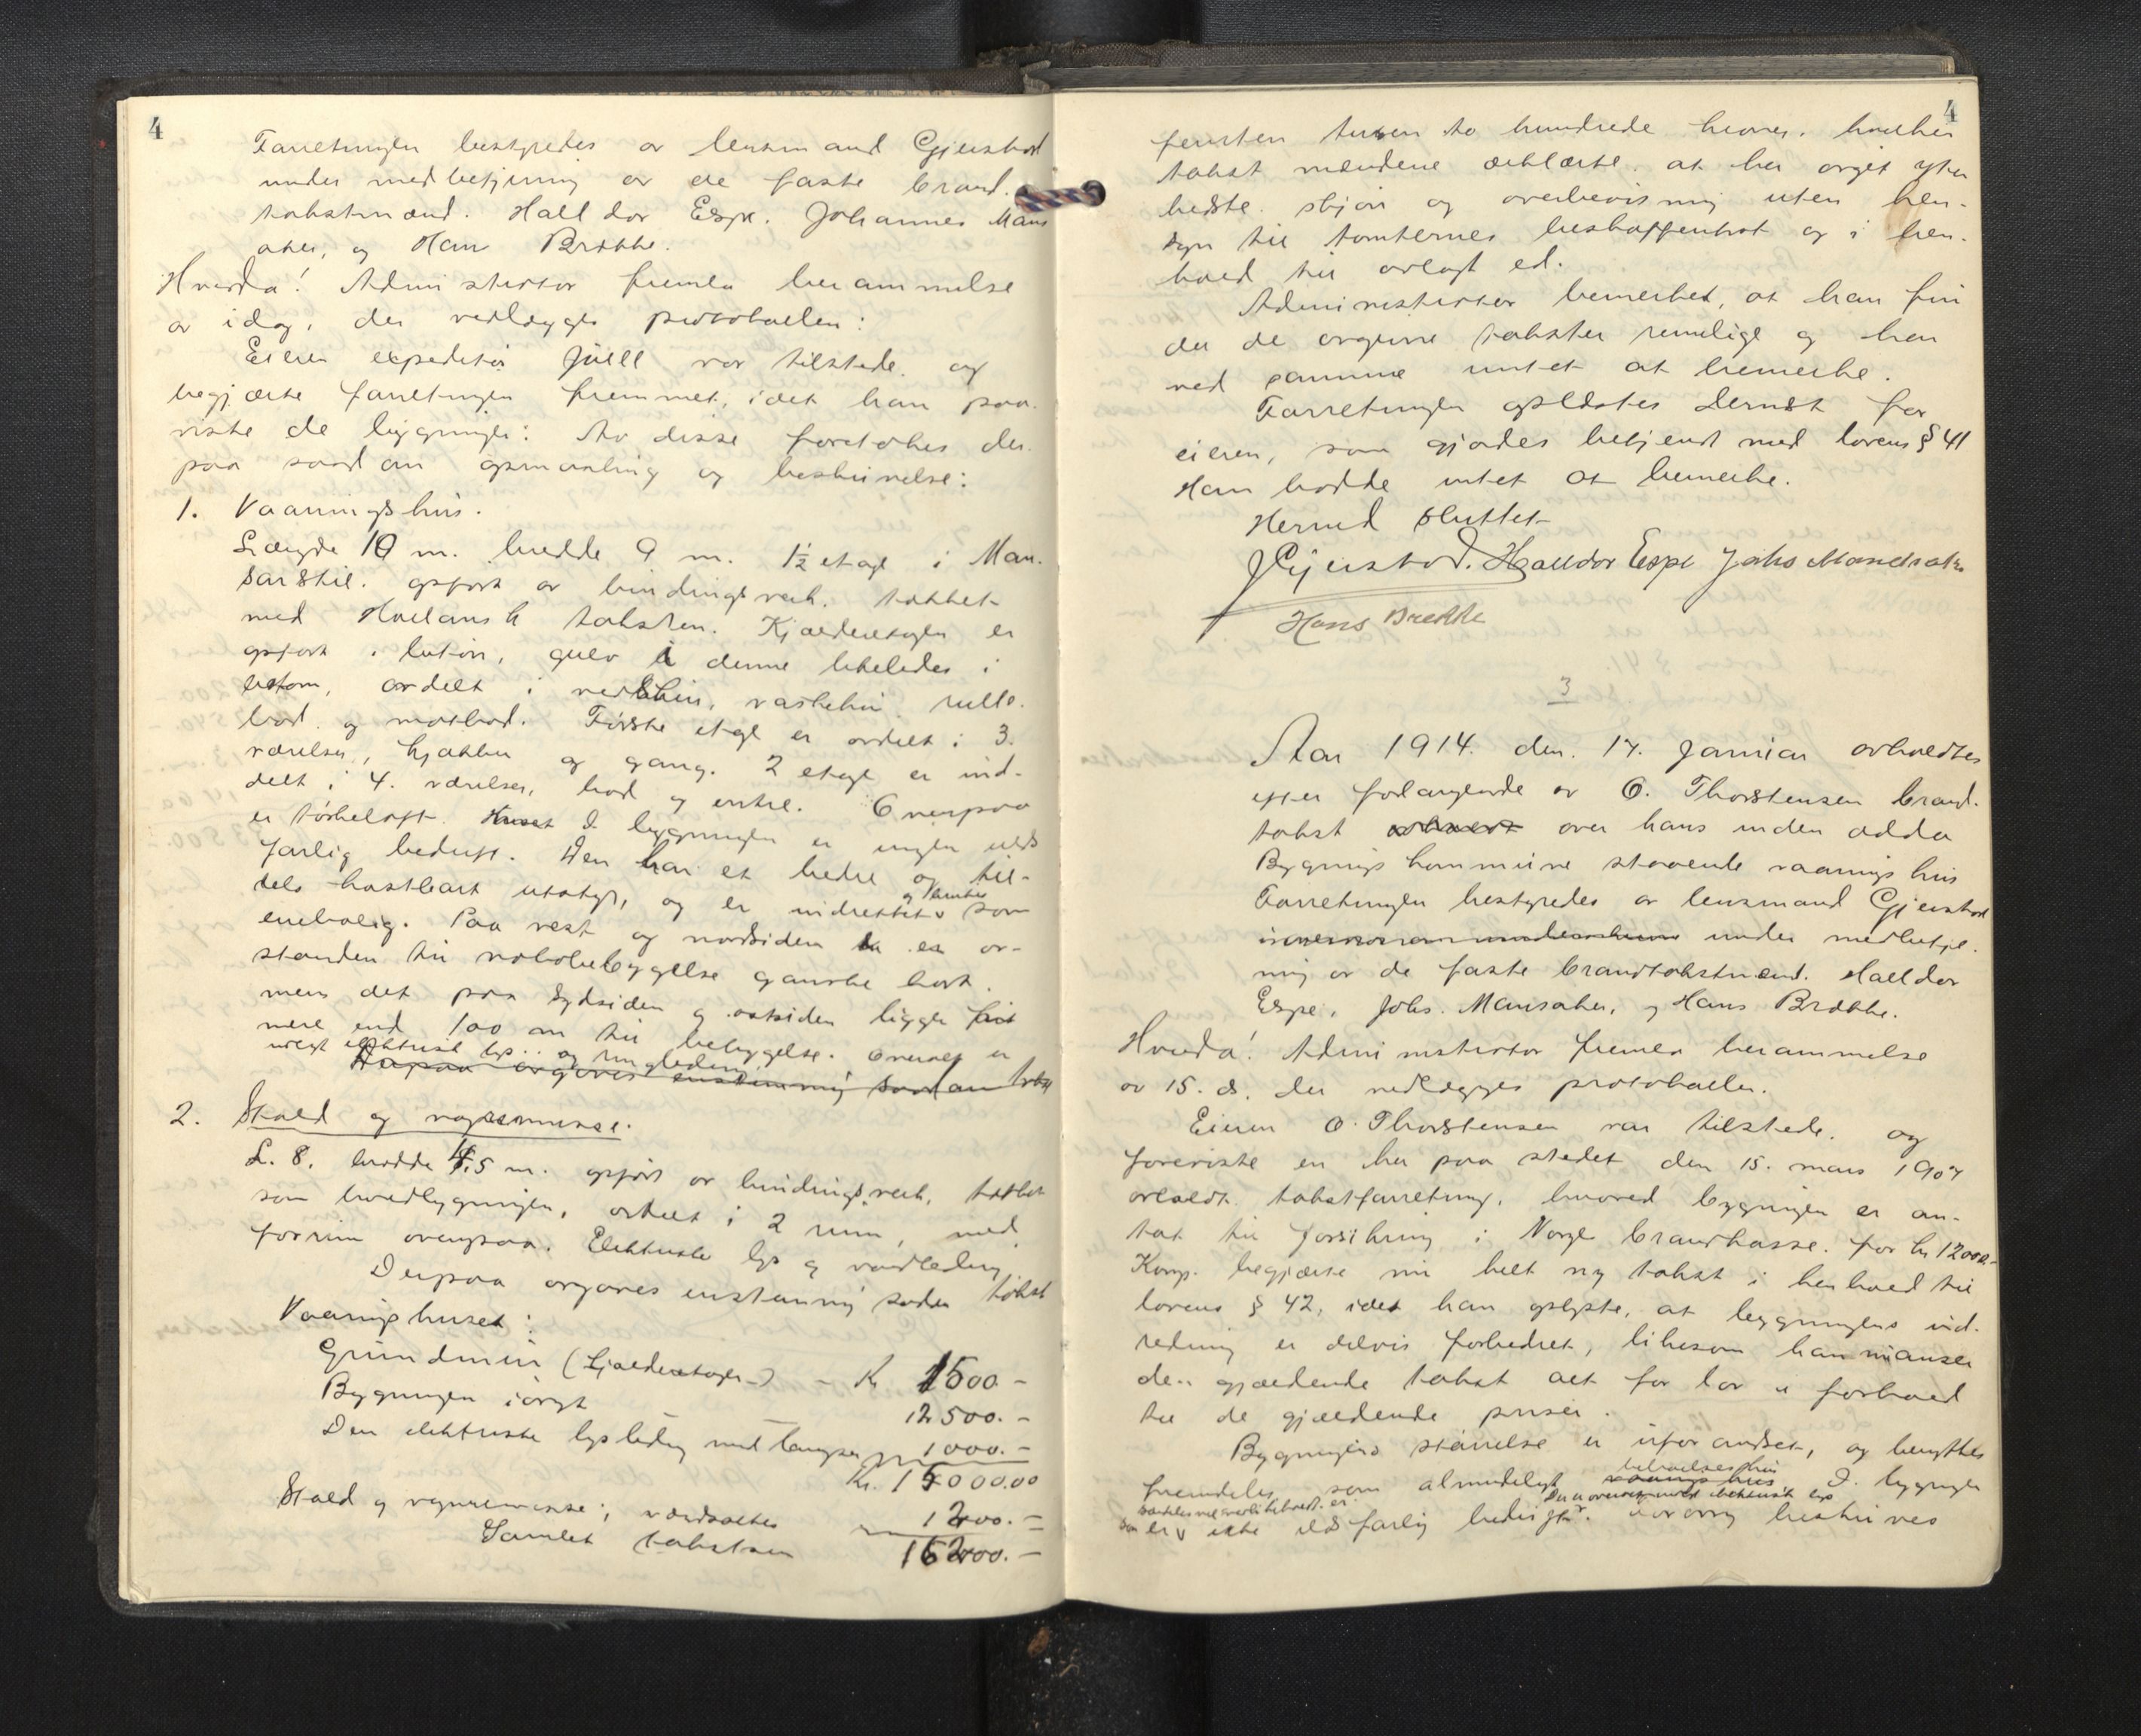 4
Forretningen bestyredes av lensmand Gjerstad
under medbetjening av de faste brand-
takstmænd. Halldor Espe. Johannes Mans
aker, og Hans Brække.
Hvorda! Administrator fremla berammelse
av idag, der vedlægges protokollen:
Eieren expeditør Juell var tilstede og
begjærte forretningen fremmet, idet han paa-
viste de bygninger: Av disse foretokes der-
paa saadan opmaaling og beskrivelse:
1. Vaaningshus.
Længde 10 m. bredde 9 m. 1½ etage i Man-
sarstil. opført av bindingsverk. tækket
med Hollansk taksten. Kjælderetagen er
opført i beton, gulv i denne likeledes i
beton, avdelt i vedskur, vaskehus. rulle-
bod og matbod. Første etage er avdelt i 3.
værelser, kjøkken og gang. 2 etage er ind-
delt i 4. værelser, bod og entre. Ovenpaa
er tørkeloft. Huset I bygningen er ingen ilds
farlig bedrift. Den har et bedre og til-
dels kostbart utstyr, og er indrettet og benttes som
enebolig. Paa vest og nordsiden er av-
standen til nabobebyggelse ganske kort.
mens det paa sydsiden og østsiden ligger frit
mere end 100 m til bebyggelse. Overalt er
utlagt elektrisk lys og ringledning.
Derpaa avgaves enstemmig saadan takst
2. Stald og vognremisse.
L. 8. bredde 4.5 m. opført av bindingsverk, tækket
som hovedbygningen, avdelt i 2 rum, med
forrum ovenpaa. Elektriske lys og vandledning
Derpaa avgaves enstemmig sadan takst
Vaaningshuset:
Grundmur (Kjælderetagen) - Kr 1500 -
Bygningen iøvrigt - 12500. -
Den elektriske lysledning med lamper 1000. -
Kr. 15000.00
Stald og vognremisse, værdsættes 1200. -
Samlet takstsum 16200. -
4
femten tusen to hundrede kroner. hvorhos
takst mændene erklærte at ha avgit efter
bedste skjøn og overbevisning uten hen-
syn til tomternes beskaffenhet og i hen-
hold til avlagt ed.
Administrator bemerket, at han fin
der de avgivne takster rimelige og har
ved samme intet at bemerke.
Forretningen oplæstes dernæst for
eieren, som gjordes bekjendt med lovens § 41
Han hadde intet at bemerke.
Hermed sluttet
J Gjerstad. Halldor Espe Johs Mansaker
Hans Brække
3
Aar 1914. den. 17. Januar avholdtes
efter forlangende av O. Thorstensen brand-
takst over hans inden Odda
Bygningskommune staaende vaaningshus
Forretningen bestyredes av lensmand Gjerstad
under medbetje-
ning av de faste brandtakstmænd. Halldor
Espe, Johs. Mansaker, og Hans Brække.
Hvorda! Administrator fremla berammelse
av 15. ds. der vedlægges protokollen.
Eieren O. Thorstensen var tilstede. og
foreviste en her paa stedet den 15. mars 1907
avholdt takstforretning, hvorved bygningen er an-
tat til forsikring i Norges brandkasse. for kr 12000.-
Komp. begjærte nu helt ny takst i henhold til
lovens § 42, idet han oplyste, at bygningens ind-
redning er delvis forbedret, likesom han anser
den gjældende takst alt for lav i forhold
til de gjældende priser.
Bygningens størrelse er uforandret, og benyttes
fremdeles som almindelig vaaningshus beboelseshus I bygningen
Den er overalt med elektrisk lys
særdeles vel vedlikeholdt. er
er ikke ildsfarlig bedrift. iøvrig beskrives